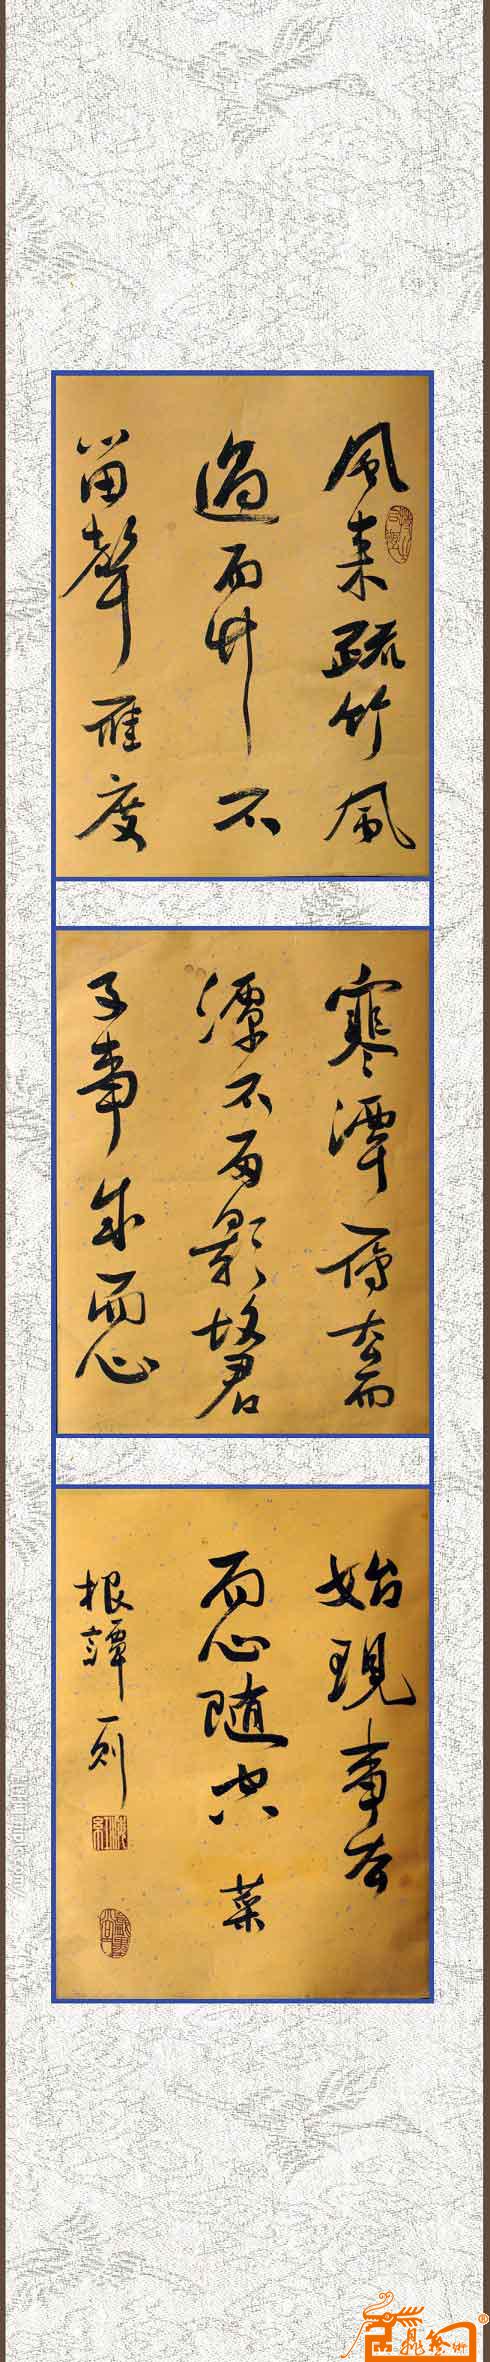 風來疏竹風
過而竹不
留聲雁度
寒潭雁去而
潭不留影故君
子事來而心
始現事去
而心随空 菜
根譚一則